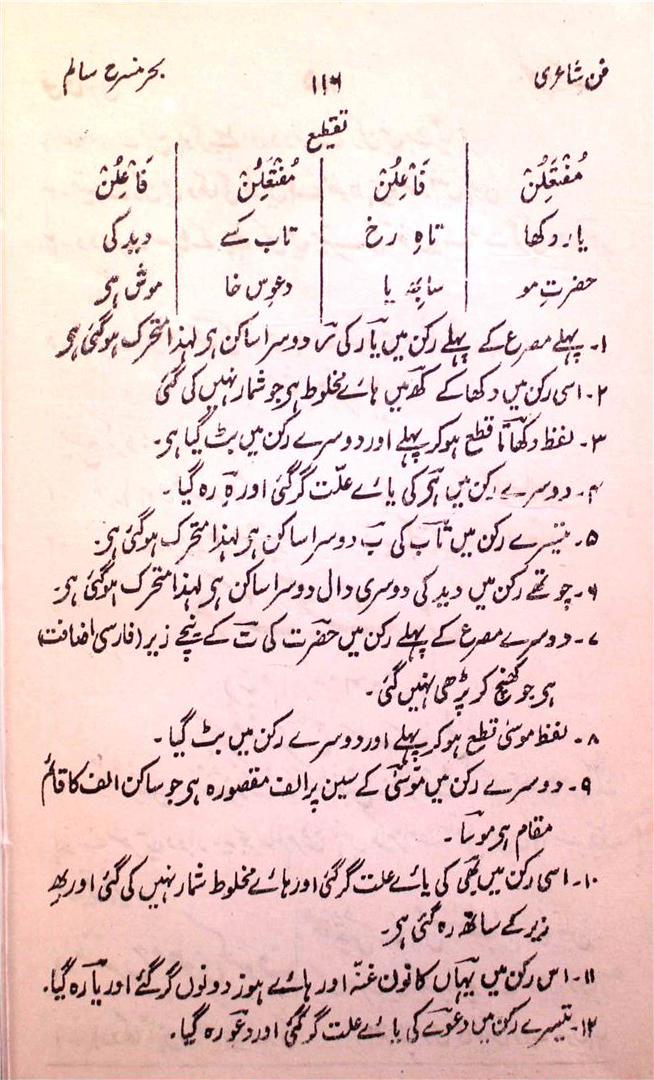 فن شاعری ۱۱۶ بحر منسرح سالم
تقطیع
مُفْتَعِلُنْ فَاعِلُنْ مُفْتَعِلُنْ فَاعِلُنْ
یار دکھا تاہِ رخ تاب کسے دیدِ کی
حضرتِ مو سابھِ یا دعوِس خا موش ہر
۱۔ پہلے مصرع کے پہلے رکن میں یار کی ر دوسرا ساکن ہر لہذا متحرک ہوگئی ہر
۲۔ اسی رکن میں دکھا کے کھ میں ہائے مخلوط ہر جو شمار نہیں کی گئی
۳۔ لفظ دکھاتا قطع ہوکر پہلے اور دوسرے رکن میں بٹ گیا ہر۔
۴۔ دوسرے رکن میں ہر کی یائے علّت گرگئی اور ہِ رہ گیا۔
۵۔ تیسرے رکن میں تاب کی ب دوسرا ساکن ہر لہذا متحرک ہوگئی ہر۔
۶۔ چوتھے رکن میں دید کی دوسری دال دوسرا ساکن ہر لہذا متحرک ہوگئی ہر۔
۷۔ دوسرے مصرع کے پہلے رکن میں حضرت کی ت کے نیچے زیر (فارسی اضافت)
ہر جو کھینچ کر پڑھی نہیں گئی۔
۸۔ لفظ موسیٰ قطع ہوکر پہلے اور دوسرے رکن میں بٹ گیا۔
۹۔ دوسرے رکن میں موسیٰ کے سین پر الف مقصورہ ہر جو ساکن الف کا قائم
مقام ہر موسا۔
۱۰۔ اسی رکن میں بھی کی یائے علت گرگئی اور ہائے مخلوط شمار نہیں کی گئی اور بھِ
زیر کے ساتھ رہ گئی ہر۔
۱۱۔ اس رکن میں یہاں کا نون غنّہ اور ہائے ہوز دونوں گرگئے اور یا رہ گیا۔
۱۲۔ تیسرے رکن میں دعوے کی یائے علت گرگئی اور دعوِ رہ گیا۔